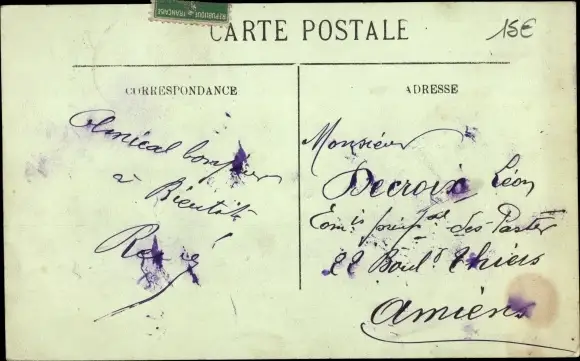 REPUBLIQUE FRANÇAISE
CARTE POSTALE
15€
CORRESPONDANCE
ADRESSE
Amical bonjour
à Bientôt
René
Monsieur
Decroix Léon
Com.is princip.al des Postes
22 Boul.d Thiers
Amiens